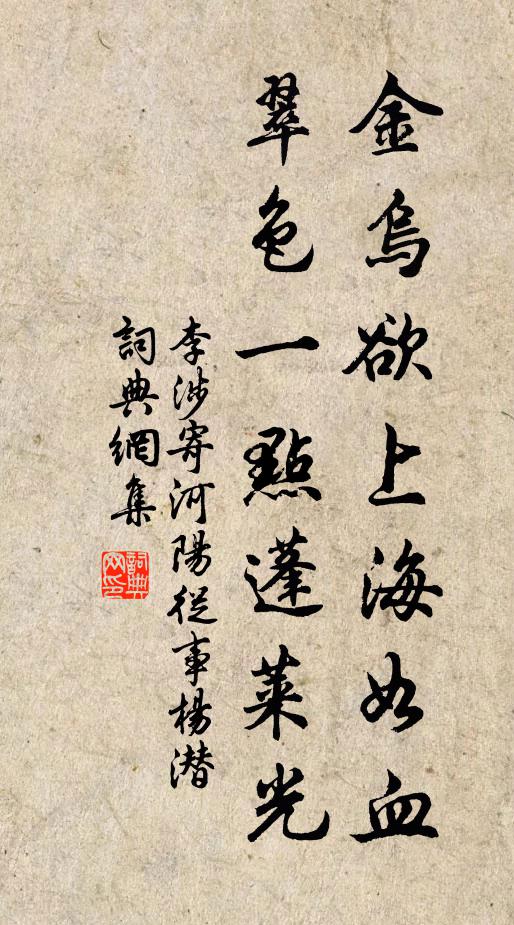 金烏欲上海如血
翠色一點蓬萊光
李涉寄河陽從事楊潜
詞典網集
詞典網印